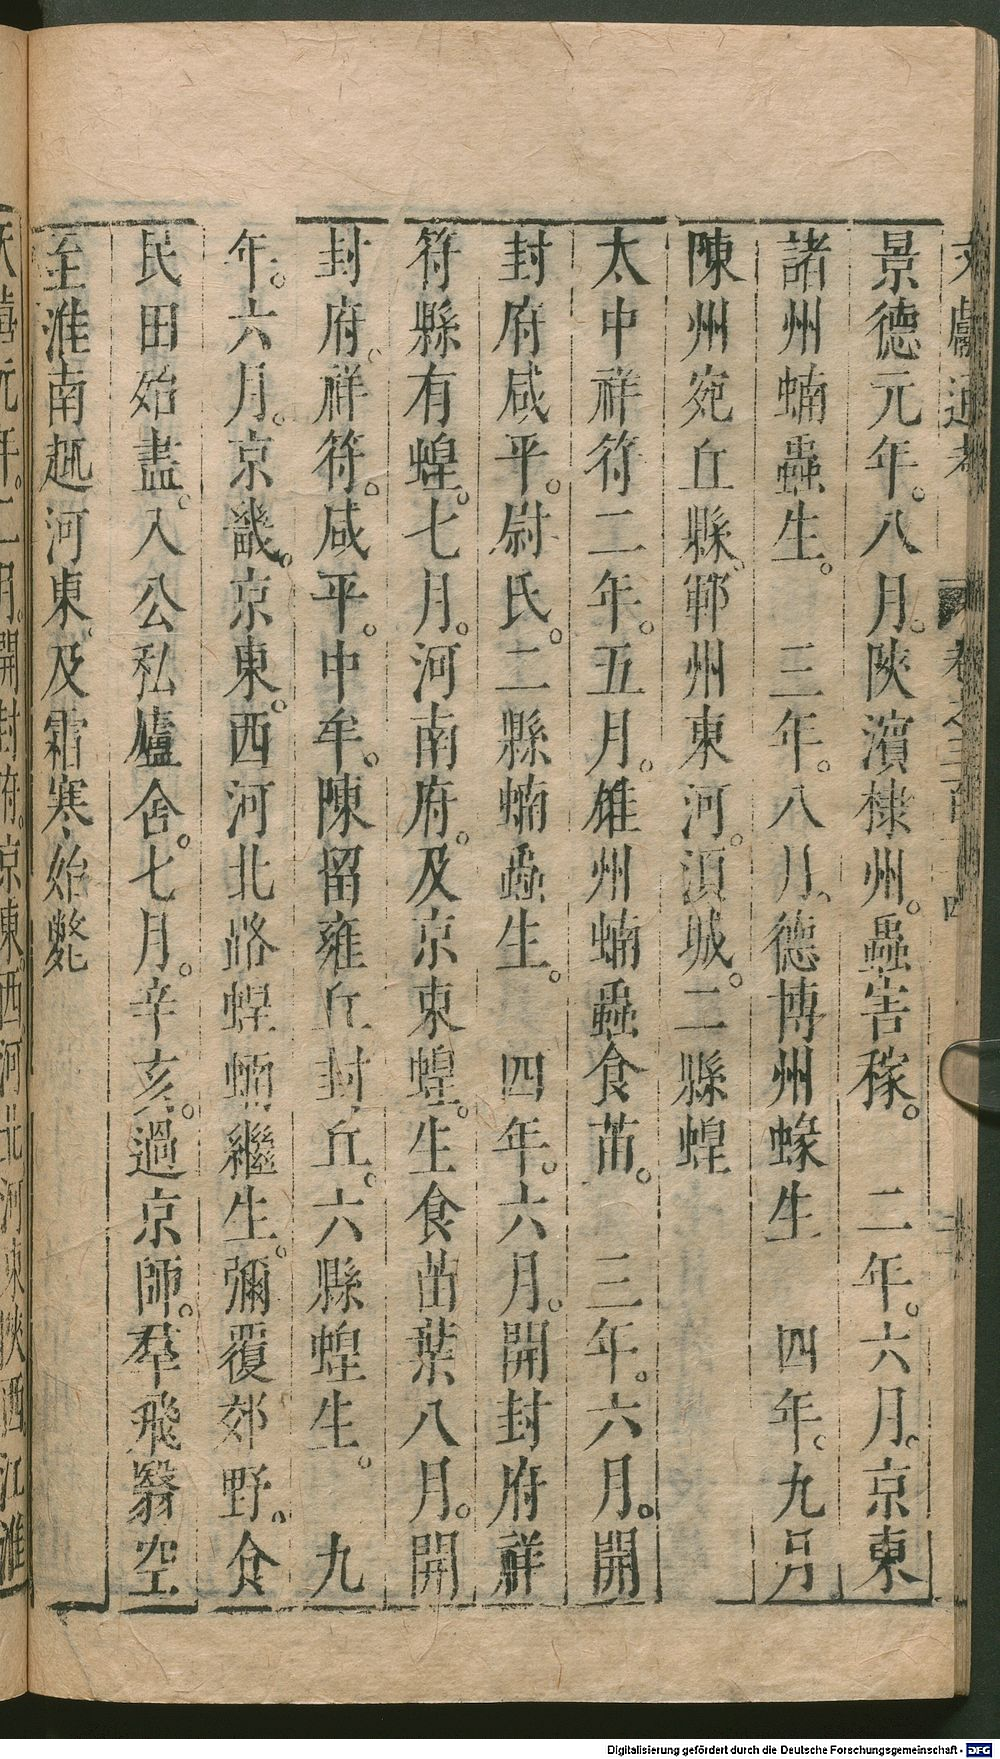 景德元年。八月。陝濱棣州。蟲害稼。　二年。六月。京東
諸州蝻蟲生。　三年。八月。德博州蝝生　四年。九月
陳州宛丘縣。鄆州東河。湏城。二縣蝗
太中祥符二年。五月。雄州蝻蟲食苗。　三年。六月。開
封府咸平。尉氏。二縣蝻蟲生。　四年。六月。開封府祥
符縣有蝗。七月。河南府。及京東蝗。生食苗葉八月。開
封府。祥符。咸平。中牟。陳留雍丘封丘。六縣蝗生。　九
年。六月。京畿。京東。西河北路蝗蝻繼生。彌覆郊野。食
民田始盡。入公私廬舍。七月。辛亥。過京師。羣飛翳空
至淮南趣河東。及霜寒始斃
元年。二月。開封府。京東西河北河東陝西江淮
Digitalisierung gefördert durch die Deutsche Forschungsgemeinschaft - DFG